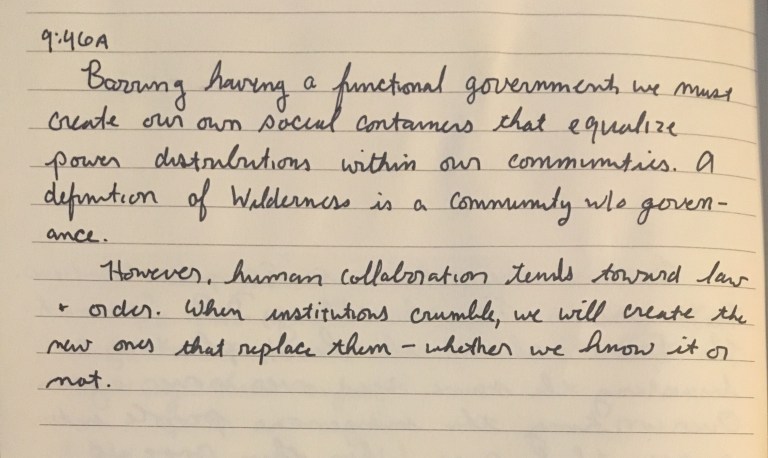 9:46A
Barring having a functional government, we must
create our own social containers that equalize
power distributions within our communities. A
definition of Wilderness is a community w/o govern-
ance.
However, human collaboration tends toward law
+ order. When institutions crumble, we will create the
new ones that replace them – whether we know it or
not.